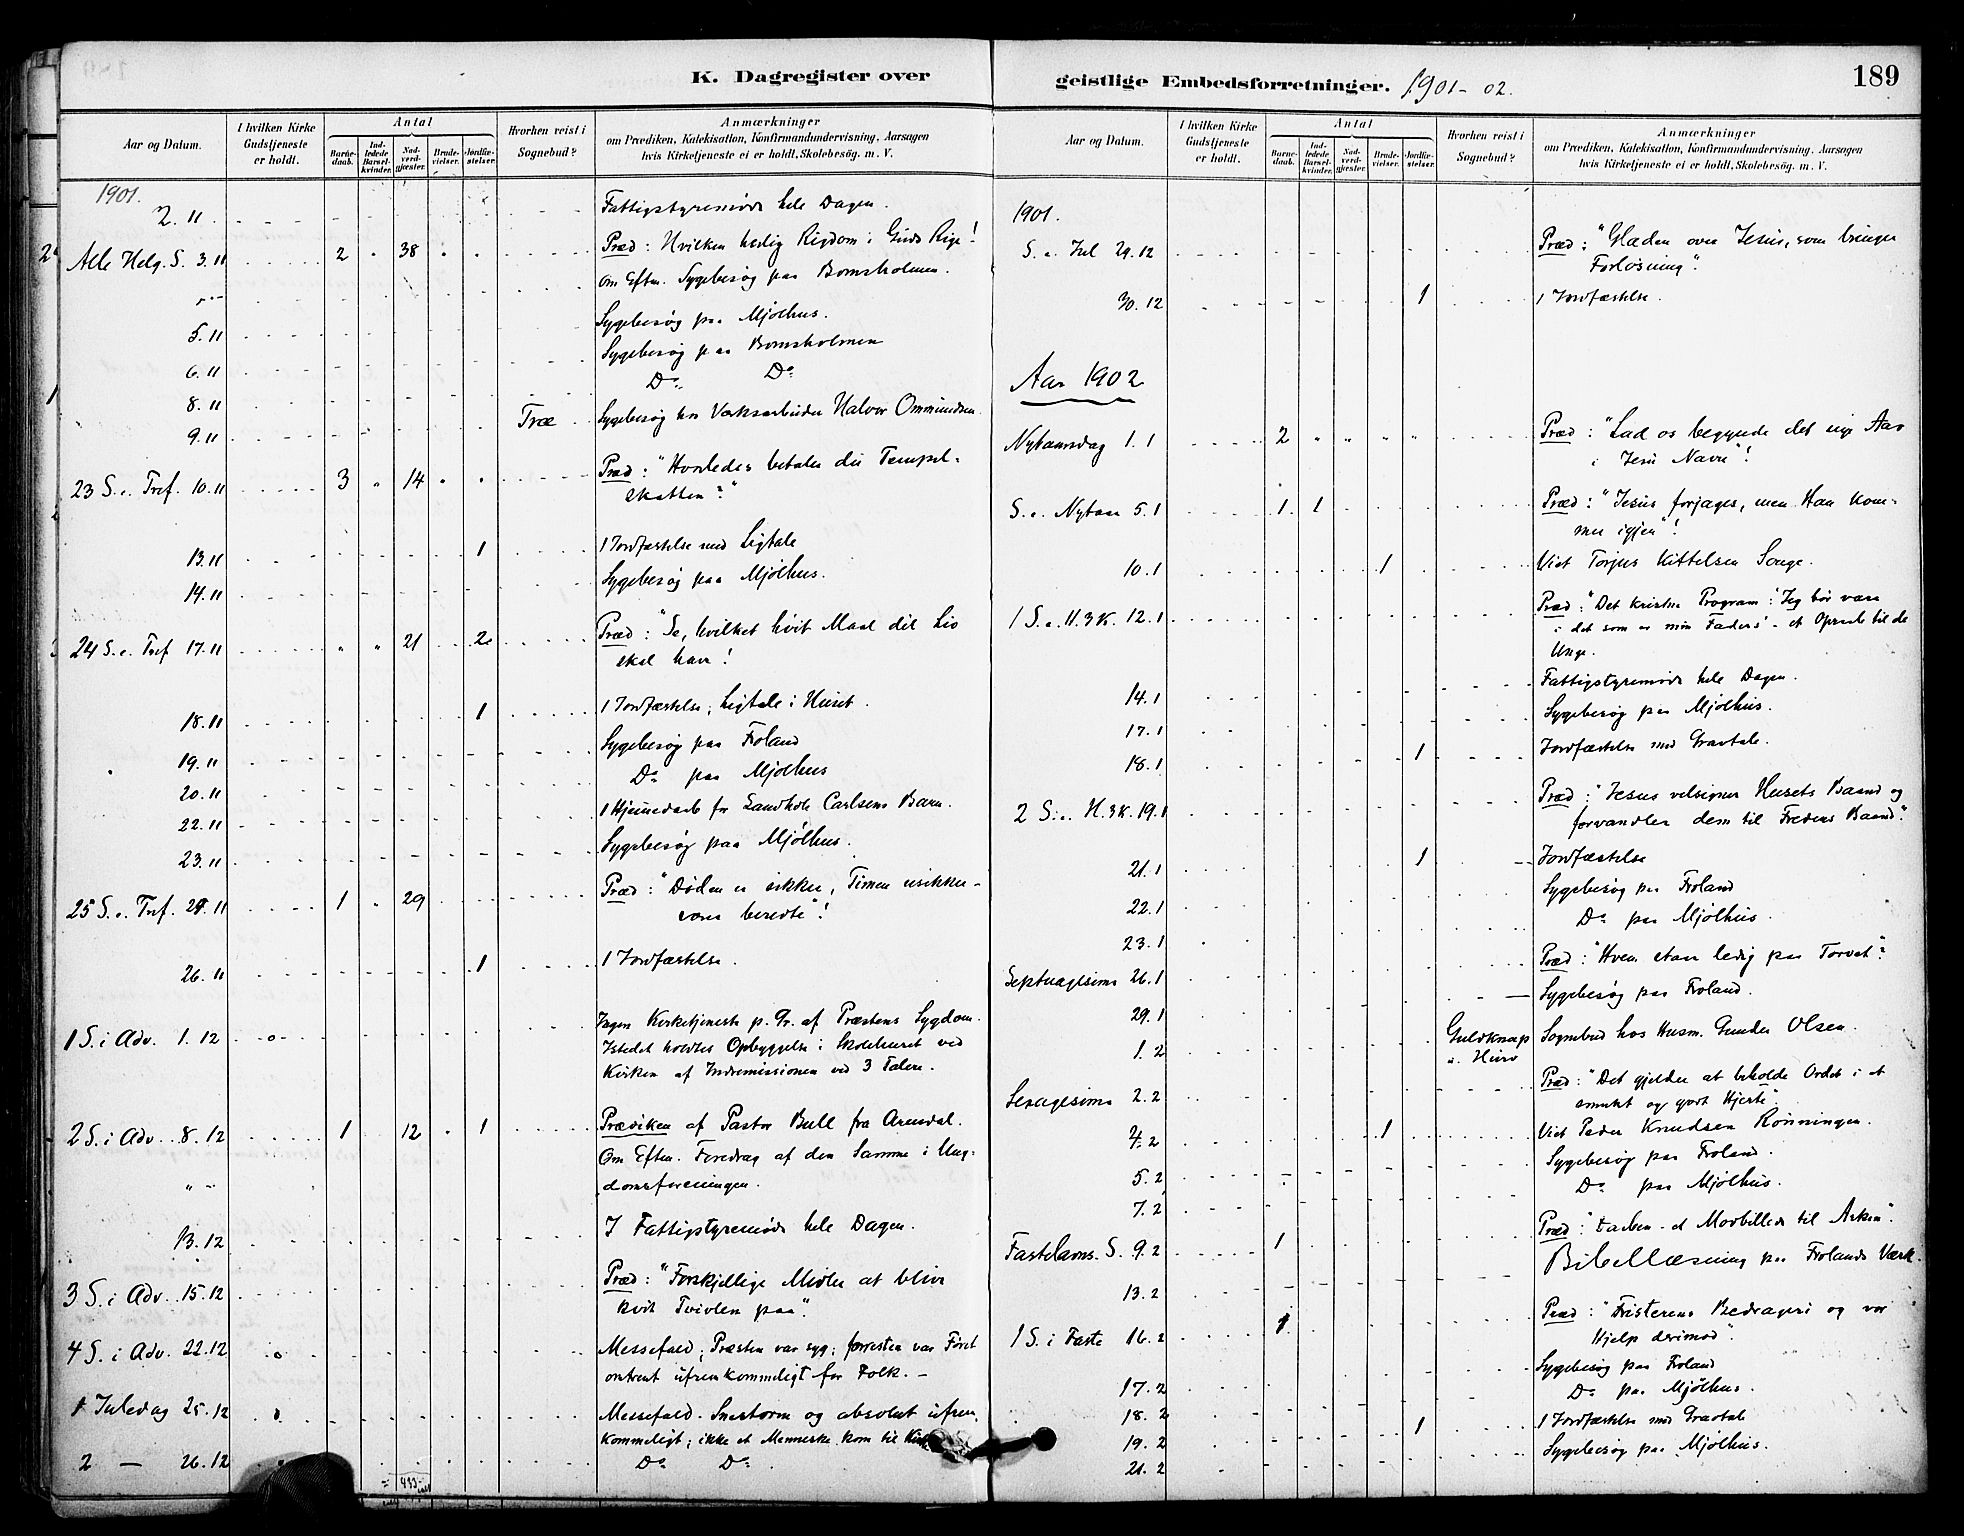 K. Dagregister over
Aar og Datum.
I hvilken Kirke Gudstjeneste er holdt.
Antal
Barnedaab.
Indledede Barselkvinder.
Nadverdgjæster.
Brudevielser.
Jordfæstelser.
Hvorhen reist i Sognebud?
Anmærkninger
om Prædiken, Katekisation, Konfirmandundervisning, Aarsagen
hvis Kirketjeneste ei er holdt, Skolebesøg. m. V.
1901.
2. 11 Fattigstyremøde hele Dagen.
Alle Helg. S. 3. 11 2 " 38 " " Præd: Hvilken herlig Rigdom i Guds Rige!
Om Eftm. Sygebesøg paa Bomsholmen.
5. 11 Sygebesøg paa Mjølhus.
6. 11 Sygebesøg paa Bomsholmen
8. 11 Do. Do.
9. 11 Træ Sygebesøg hos Værksarbeider Halvor Ommundsen.
23 S. e. Tref. 10. 11 3 " 14 " " Præd: "Hvorledes betaler du Tempel-
skatten?"
13. 11 1 1 Jordfæstelse med Ligtale
14. 11 Sygebesøg paa Mjølhus.
24 S. e. Tref 17. 11 " " 21 2 Præd: "Se, hvilket høit Maal dit Liv
skal have!
18. 11 1 1 Jordfæstelse; Ligtale i Huset.
19. 11 Sygebesøg paa Froland
20. 11 Do paa Mjølhus
22. 11 1 Hjemmedaab for Carlsens Barn.
23. 11 Sygebesøg paa Mjølhus.
25 S. e. Tref. 24. 11 1 " 29 Præd: "Døden er sikker, Timen usikker-
være beredte"!
26. 11 1 1 Jordfæstelse.
1 S. i Adv. 1. 12 o Ingen Kirketjeneste p. Gr. af Præstens Sygdom.
Istedet holdtes Opbyggelse i Skolehuset ved
Kirken af Indremissionen ved 3 Talere.
2 S. i Adv. 8. 12 1 12 " 1 Prædiken af Pastor Bull fra Arendal.
" - Om Eftm. Foredrag af den Samme i Ung-
domsforeningen.
13. 12 I Fattigstyremøde hele Dagen.
3 S. i Adv. 15. 12 Præd: "Forskjellige Midler at blive
kvit Tvivlen paa".
4 S. i Adv. 22. 12 o Messefald; Præsten var syg; forresten var Føret
omtrent ufremkommeligt for Folk. -
1 Juledag 25. 12 o Messefald. Snestorm og absolut ufrem-
kommeligt; ikke et Menneske kom til Kirke
2 - 26. 12 Do Do.
433
geistlige Embedsforretninger. 1901-02.
189
Aar og Datum.
I hvilken Kirke Gudstjeneste er holdt.
Antal
Barnedaab.
Indledede Barselkvinder.
Nadverdgjæster.
Brudevielser.
Jordfæstelser.
Hvorhen reist i Sognebud?
Anmærkninger
om Prædiken, Katekisation, Konfirmandundervisning, Aarsagen
hvis Kirketjeneste ei er holdt, Skolebesøg. m. V.
1901.
S. e. Jul 29. 12 Præd: "Glæden over Jesus, som bringer
Forløsning".
30. 12 1 1 Jordfæstelse.
Aar 1902
Nytaarsdag 1. 1 2 " " " " Præd: "Lad os begynde det nye Aar
i Jesu Navn"!
S. e. Nytaar 5. 1 1 1 Præd: "Jesus forjages, men Han kom-
mer igjen"!
10. 1 1 Viet Torjus Kittelsen Songe.
1 S. e. H. 3 K. 12. 1 Præd: "Det kristne Program: 'Jeg bør være
i det som er min Faders' - et Opraab til de
Unge.
14. 1 Fattigstyremøde hele Dagen.
17. 1 Sygebesøg paa Mjølhus.
18. 1 1 Jordfæstelse med Gravtale.
2 S. e. H. 3 K. 19. 1 Præd: "Jesus velsigner Husets Baand og
forvandler dem til Fredens Baand".
21. 1 1 Jordfæstelse
22. 1 Sygebesøg paa Froland
23. 1 Do paa Mjølhus.
Septuagesima 26. 1 Præd: "Hven staar ledig paa Torvet"?
29. 1 Sygebesøg paa Froland.
1. 2 Guldknap Sognebud hos Husm. Gunder Olsen.
Sexagesima 2. 2 Præd: "Det gjelder at beholde Ordet i et
smukt og godt Hjerte".
4. 2 1 Viet Peder Knudsen Rønningen.
5. 2 Sygebesøg paa Froland.
7. 2 Do paa Mjølhus.
Fastelavns. S. 9. 2 1 Præd: "Daaben - et Modbillede til Arken".
13. 2 Bibellæsning paa Frolands Værk.
1 S. i Faste 16. 2 1 Præd: "Fristerens Bedrageri og vor
Hjelp derimod".
17. 2 Sygebesøg paa Froland
18. 2 Do paa Mjølhus.
19. 2 1 1 Jordfæstelse med Gravtale
21. 2 Sygebesøg paa Mjølhus.